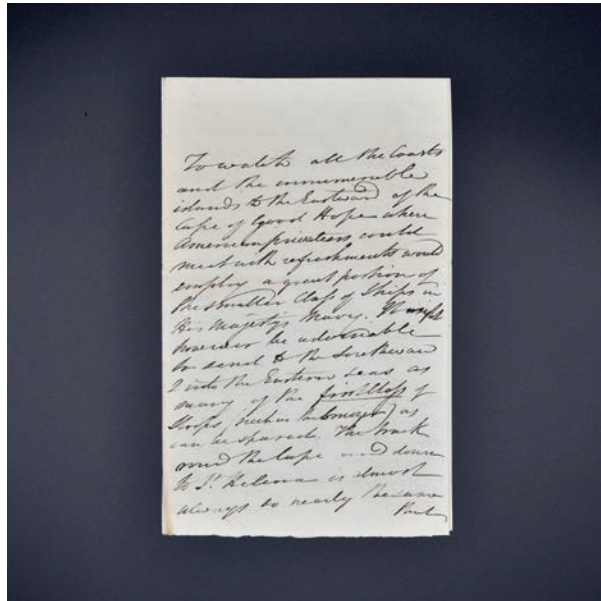 To watch all the Coasts
and the innumerable
islands to the Eastward of the
Cape of Good Hope where
American privateers could
meet with refreshments would
employ a great portion of
the smaller Class of Ships in
His Majesty's Navy. It
however be adviseable
to send to the Southward
& into the Eastern Seas as
many of the first Class of
Sloops (such as ) as
can be spared. The track
round the Cape and down
to St. Helena is almost
always so nearly the same